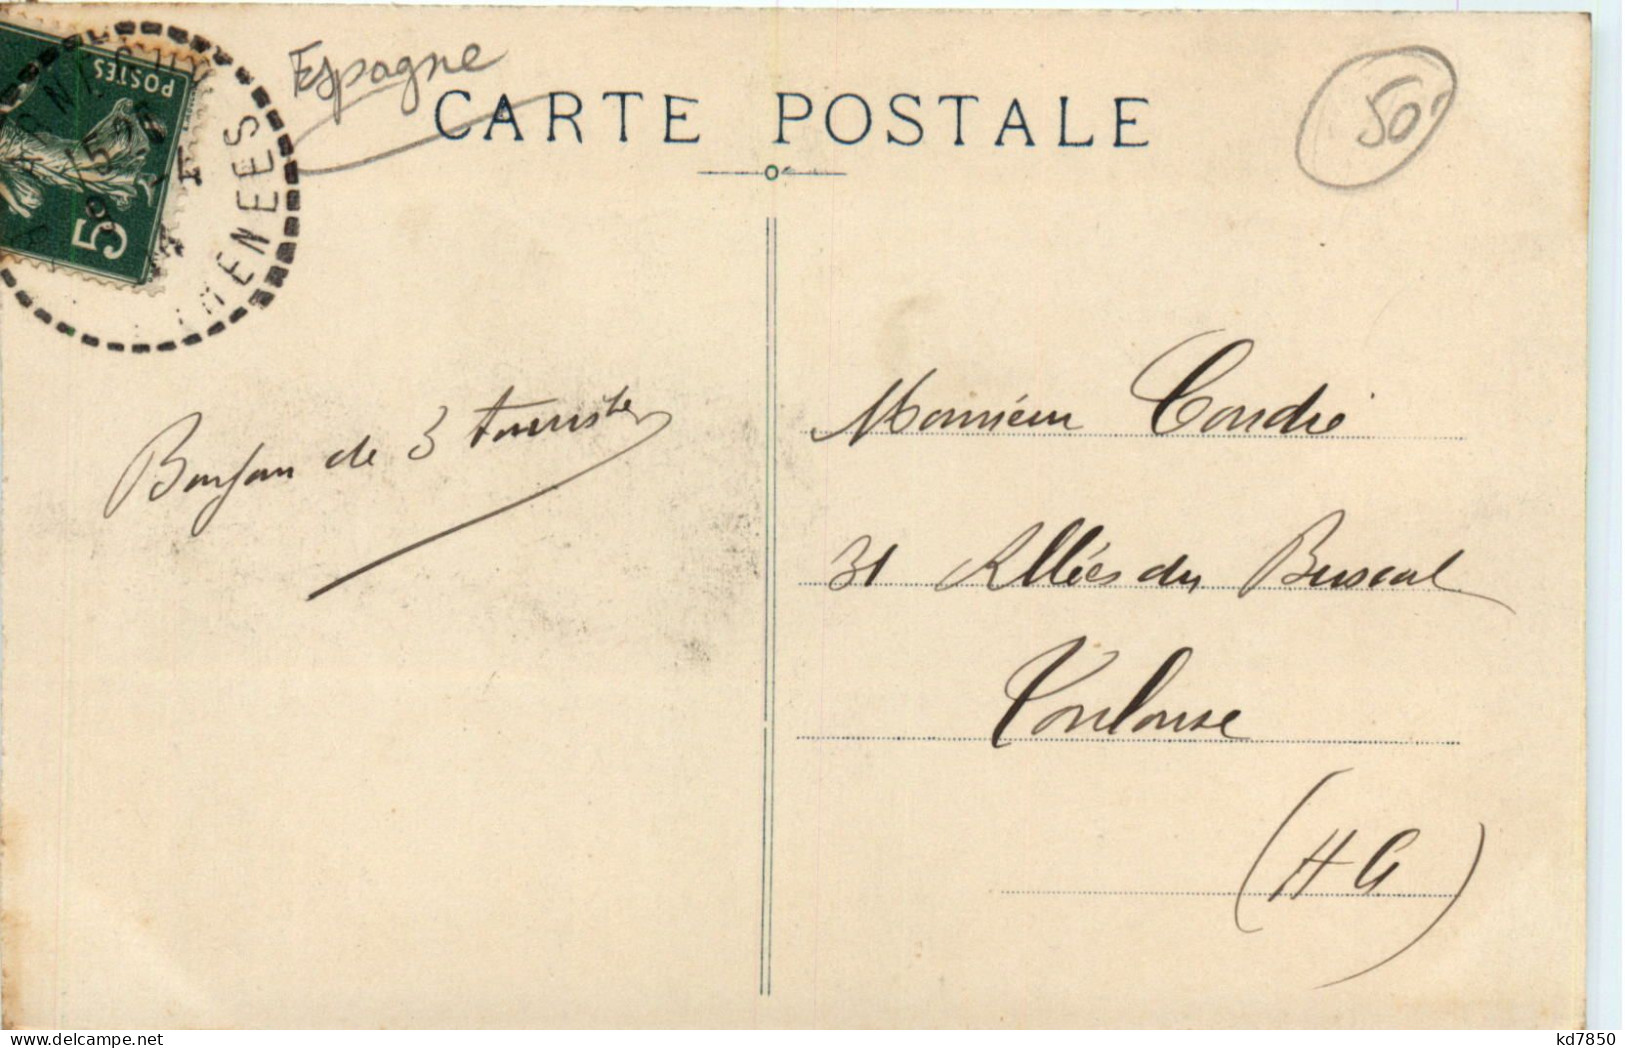 Espagne
CARTE POSTALE
50
POSTES
5
5
Bonjour de 3 touristes
Monsieur Condré
31 Allées du Buscat
Toulouse
(HG)
kd7850